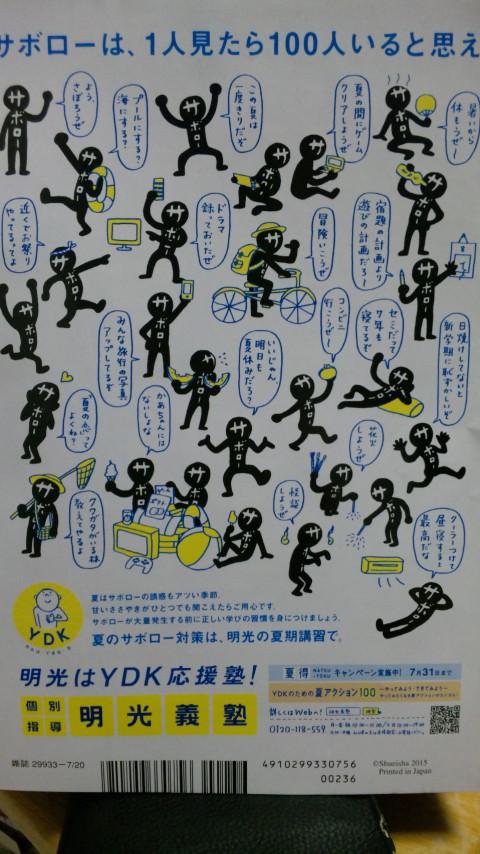 サボローは、1人見たら100人いると思え
よう、
さぼろうぜ
プールにする?
海にする?
この夏は
一度きりだぞ
夏の間にゲーム
クリアしようぜ
暑いから
休もうぜ〜
近くでお祭り
やってるってよ
ドラマ
録っておいたぜ
冒険いこうぜ
宿題の計画より
遊びの計画だろ〜
みんな旅行の写真
アップしてるぞ
いいじゃん
明日も
夏休みだろ?
コンビニ
行こうぜ〜
セミだって
7年も
寝てるぞ
日焼けしてないと
新学期に恥ずかしいぞ
夏の恋って
よくね?
かあちゃんには
ないしょな
花火
しようぜ
クワガタがいる林
教えてやるよ
怪談
しようぜ
クーラーつけて
昼寝すると
最高だな
サボロー
YDK
夏はサボローの誘惑もアツい季節。
甘いささやきがひとつでも聞こえたらご用心です。
サボローが大量発生する前に正しい学びの習慣を身につけましょう。
夏のサボロー対策は、明光の夏期講習で。
明光はYDK応援塾!
個別
指導
明光義塾
夏得 NATSU-TOKU キャンペーン実施中! 7月31日まで
YDKのための夏アクション100
詳しくはWebへ!
明光義塾
検索
0120-118-559
雑誌 29933-7/20
4910299330756
00236
©Shueisha 2015
Printed in Japan